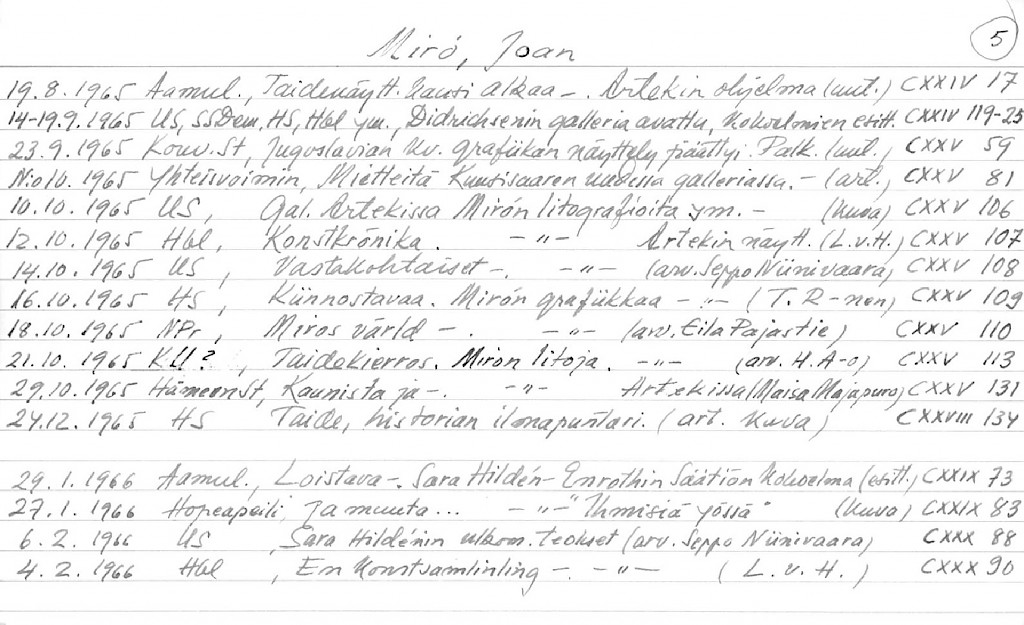 5
Miró, Joan
19.8.1965 Aamul., Taidenäytt. kausi alkaa -. Artekin ohjelma (uut.) CXXIV 17
14-19.9.1965 US, SSDem, HS, Hbl ym., Didrichsenin galleria avattu, kokoelmien esitt. CXXIV 119-25
23.9.1965 Kouv. St, Jugoslavian kv. grafiikan näyttely päättyi. Palk. (uut., CXXV 59
N:o 10. 1965 Yhteisvoimin, Mietteitä Kuusisaaren uudessa galleriassa. - (art.) CXXV 81
10.10.1965 US, Gal. Artekissa Mirón litografioita ym. - (kuva) CXXV 106
12.10.1965 Hbl, Konstkrönika. -"- Artekin näytt. (L.v.H.) CXXV 107
14.10.1965 US, Vastakohtaiset -. -"- (arv. Seppo Niinivaara) CXXV 108
16.10.1965 HS, Kiinnostavaa. Mirón grafiikkaa -"- (T. R-nen) CXXV 109
18.10.1965 NPr, Miros värld -. -"- (arv. Eila Pajastie) CXXV 110
21.10.1965 KU?, Taidekierros. Mirón litoja. -"- (arv. H.A-o) CXXV 113
29.10.1965 HämeenSt, Kaunista ja -. -"- Artekissa (Maisa Majapuro) CXXV 131
24.12.1965 HS Taide, historian ilmapuntari. (art. kuva) CXXVIII 134
29.1.1966 Aamul., Loistava -. Sara Hildén-Enrothin Säätiön kokoelma (esitt.) CXXIX 73
27.1.1966 Hopeapeili, Ja muuta... -"- "Ihmisiä yössä" (kuva) CXXIX 83
6.2.1966 US, Sara Hildénin ulkom. teokset (arv. Seppo Niinivaara) CXXX 88
4.2.1966 Hbl, En konstsamlinling -. -"- (L.v.H.) CXXX 90